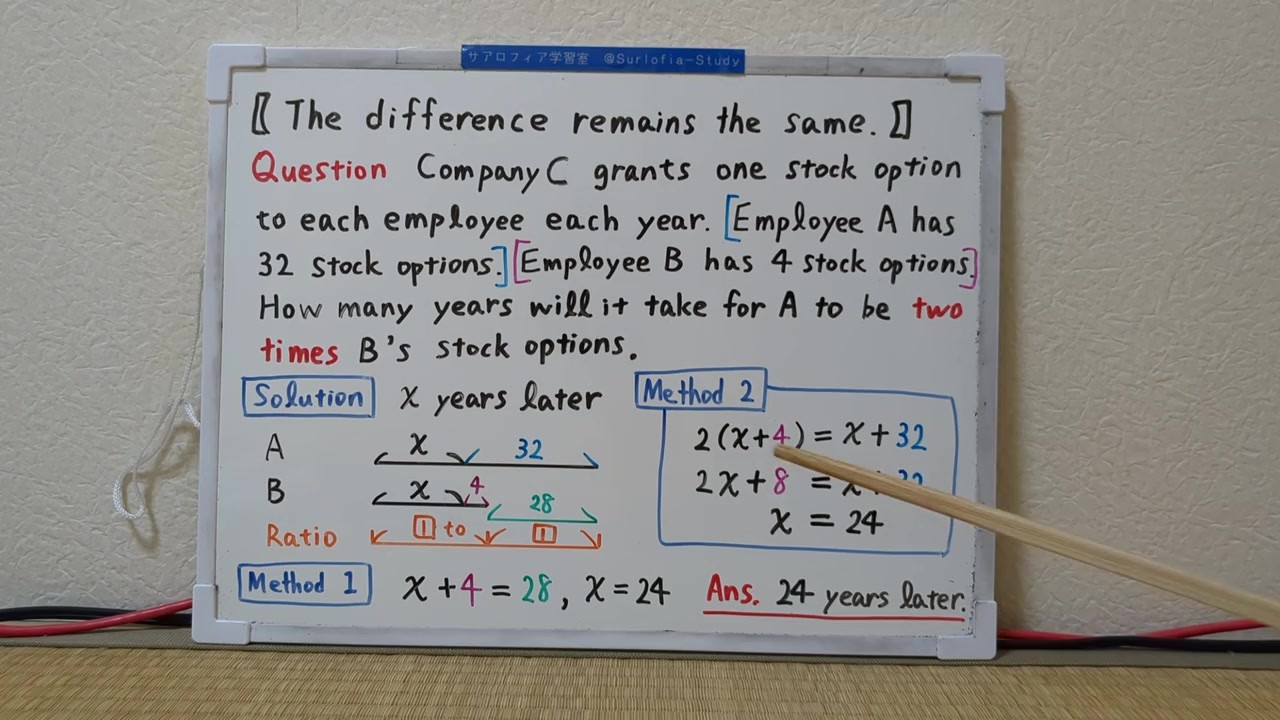 サアロフィア学習室 @Surlofia-Study
〖 The difference remains the same. 〗
Question Company C grants one stock option
to each employee each year. [Employee A has
32 stock options.] [Employee B has 4 stock options.]
How many years will it take for A to be two
times B's stock options.
Solution x years later
A x 32
B x 4 28
Ratio 1 to 1
Method 1 x + 4 = 28, x = 24
Method 2
2(x+4) = x + 32
2x + 8 =
x = 24
Ans. 24 years later.